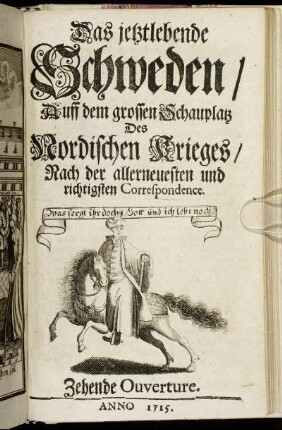 Das jetztlebende
Schweden /
Auff dem grossen Schauplatz
Des
Nordischen Krieges /
Nach der allerneuesten und
richtigsten Correspondence.
was sorgt ihr doch, Gott und ich lebt noch
Zehende Ouverture.
ANNO 1715.